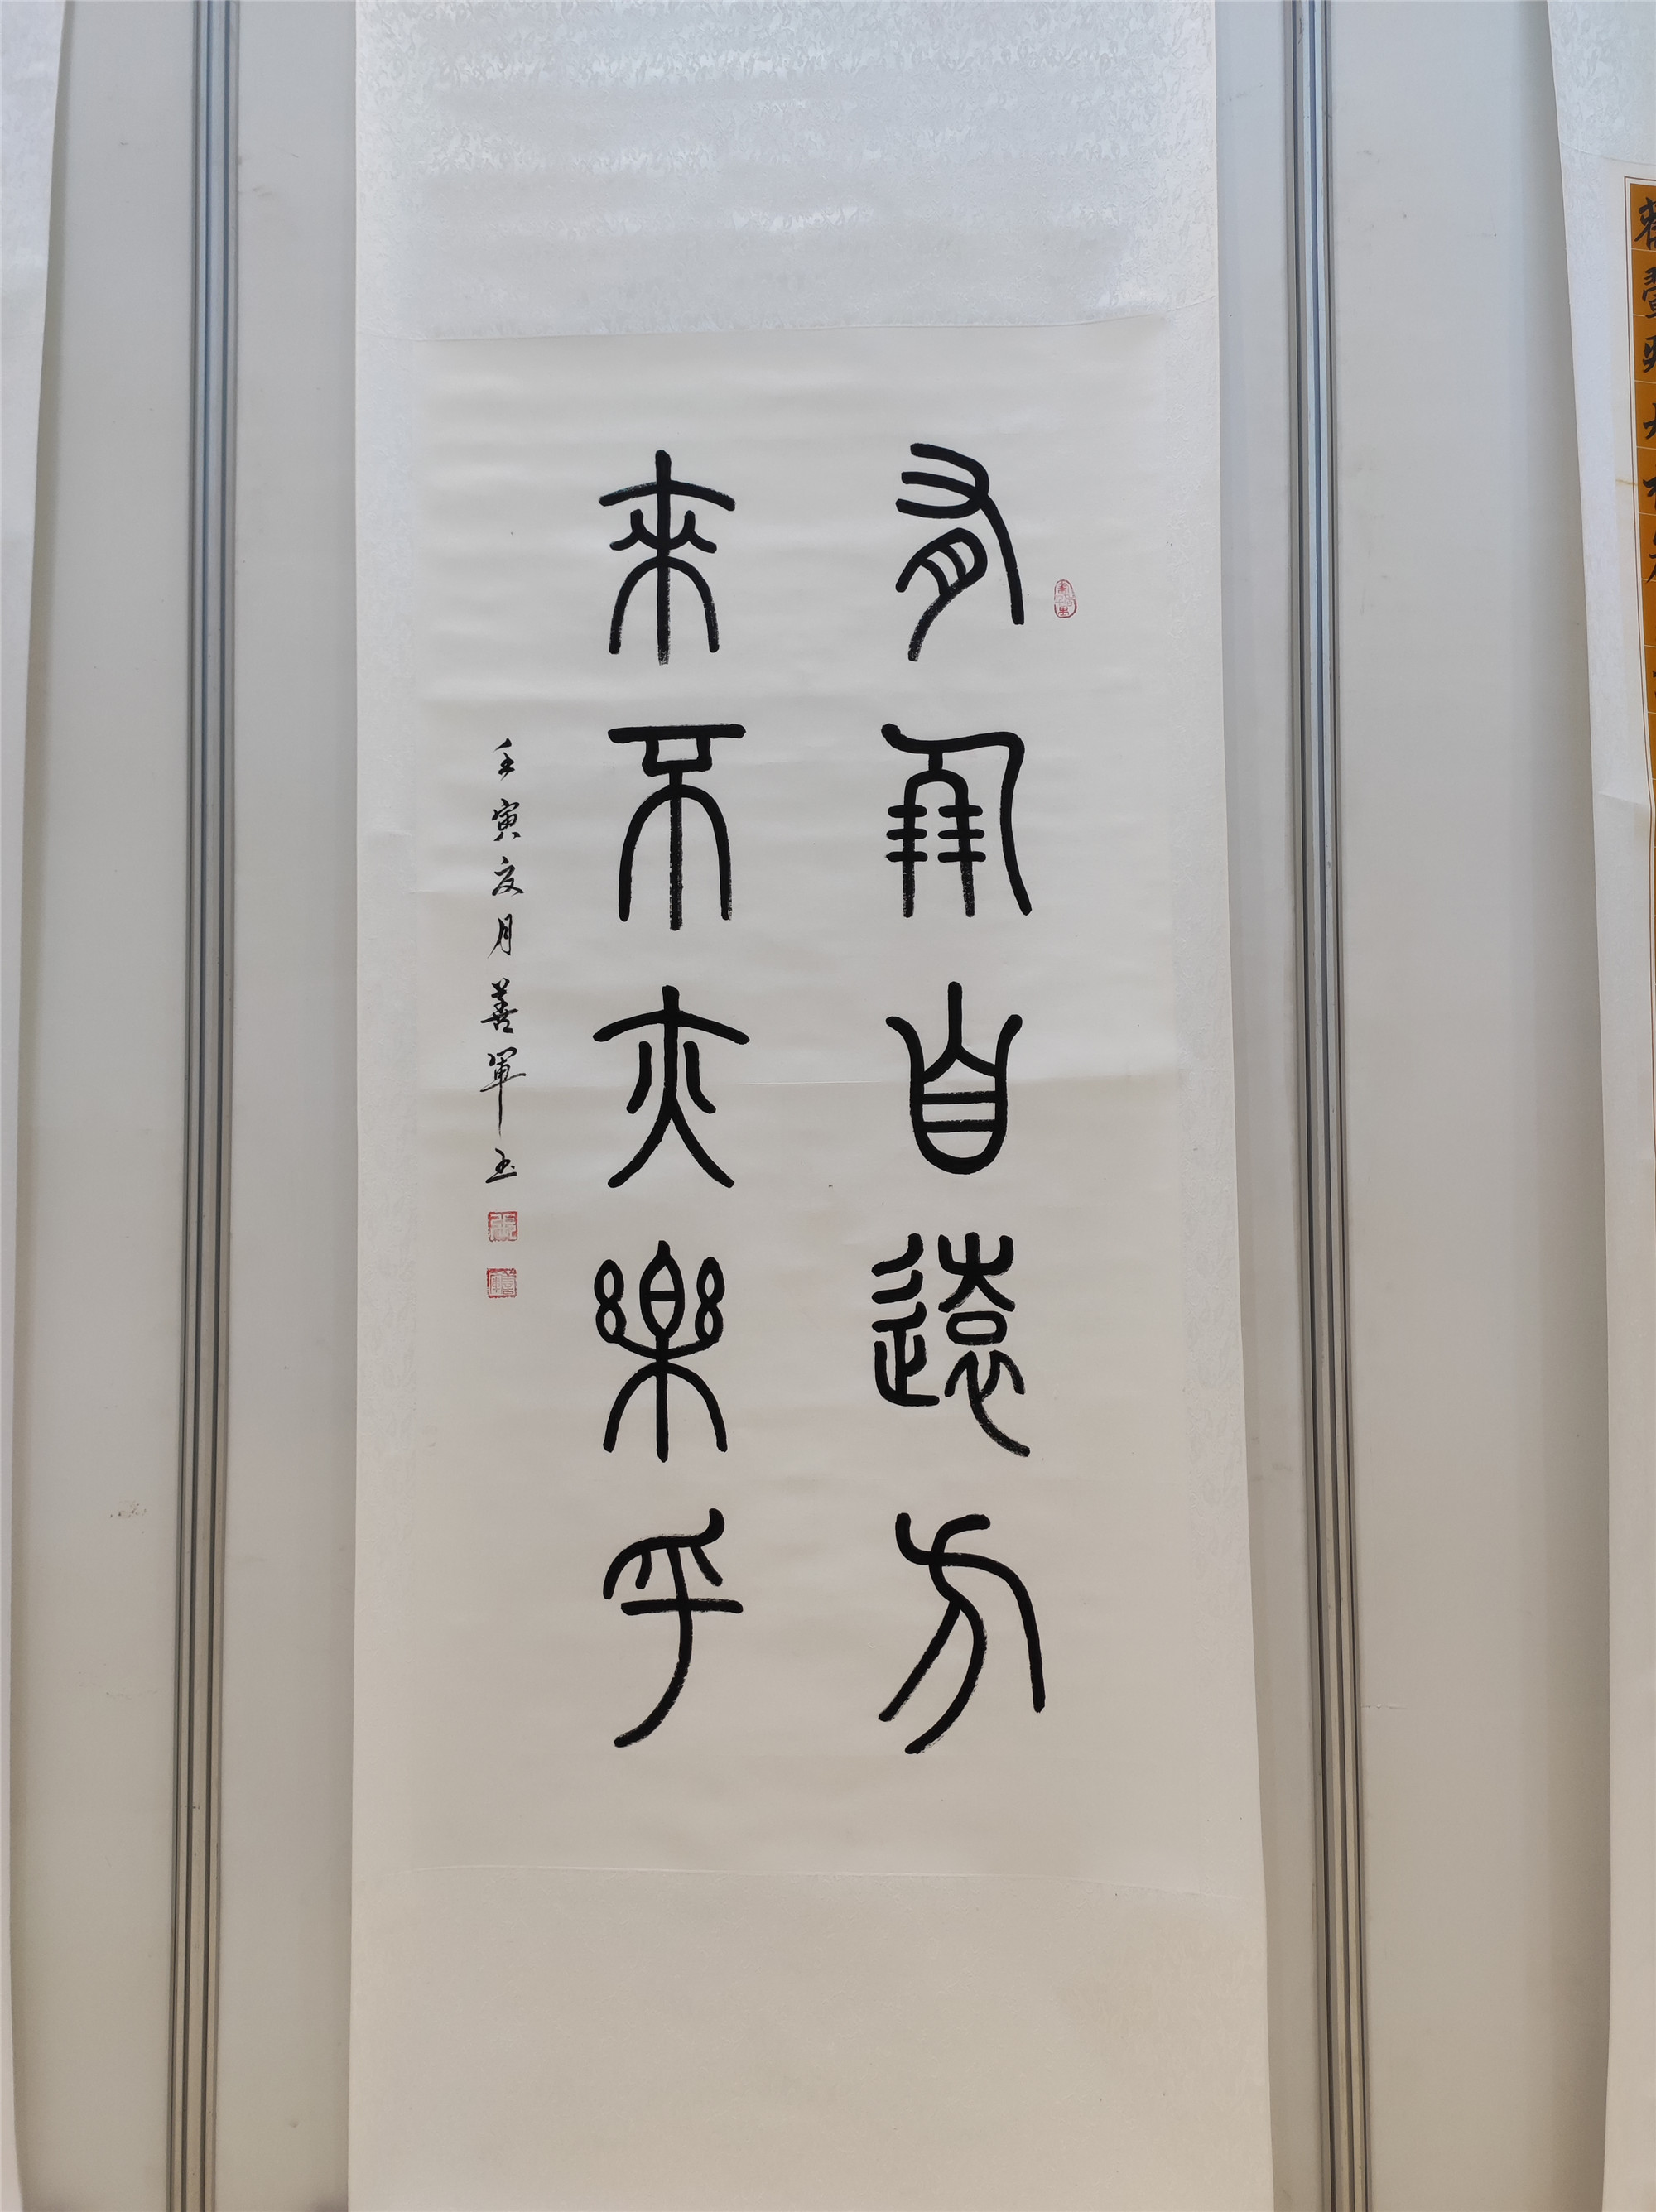 有朋自遠方
來不亦樂乎
壬寅夏月善軍书